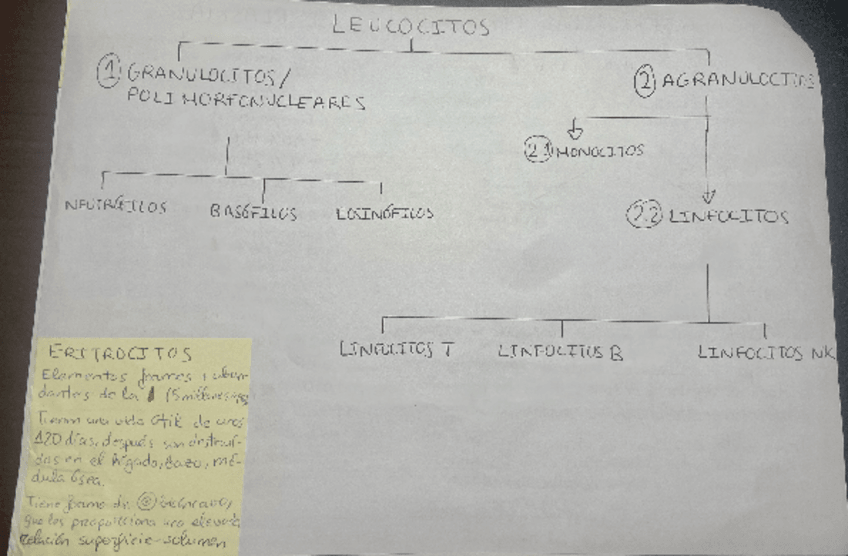 LEUCOCITOS
1 GRANULOCITOS/
POLIMORFONUCLEARES
2 AGRANULOCITOS
2.1 MONOCITOS
NEUTRÓFILOS BASÓFILOS EOSINÓFILOS
2.2 LINFOCITOS
LINFOCITOS T LINFOCITOS B LINFOCITOS NK
ERITROCITOS
Elementos formes + abun-
dantes de la (5 millones
Tienen una vida útil de unos
120 días, después son destruí-
dos en el hígado, bazo, mé-
dula ósea.
Tiene forma de bicóncavo,
que los proporciona una elevada
relación superficie-volumen